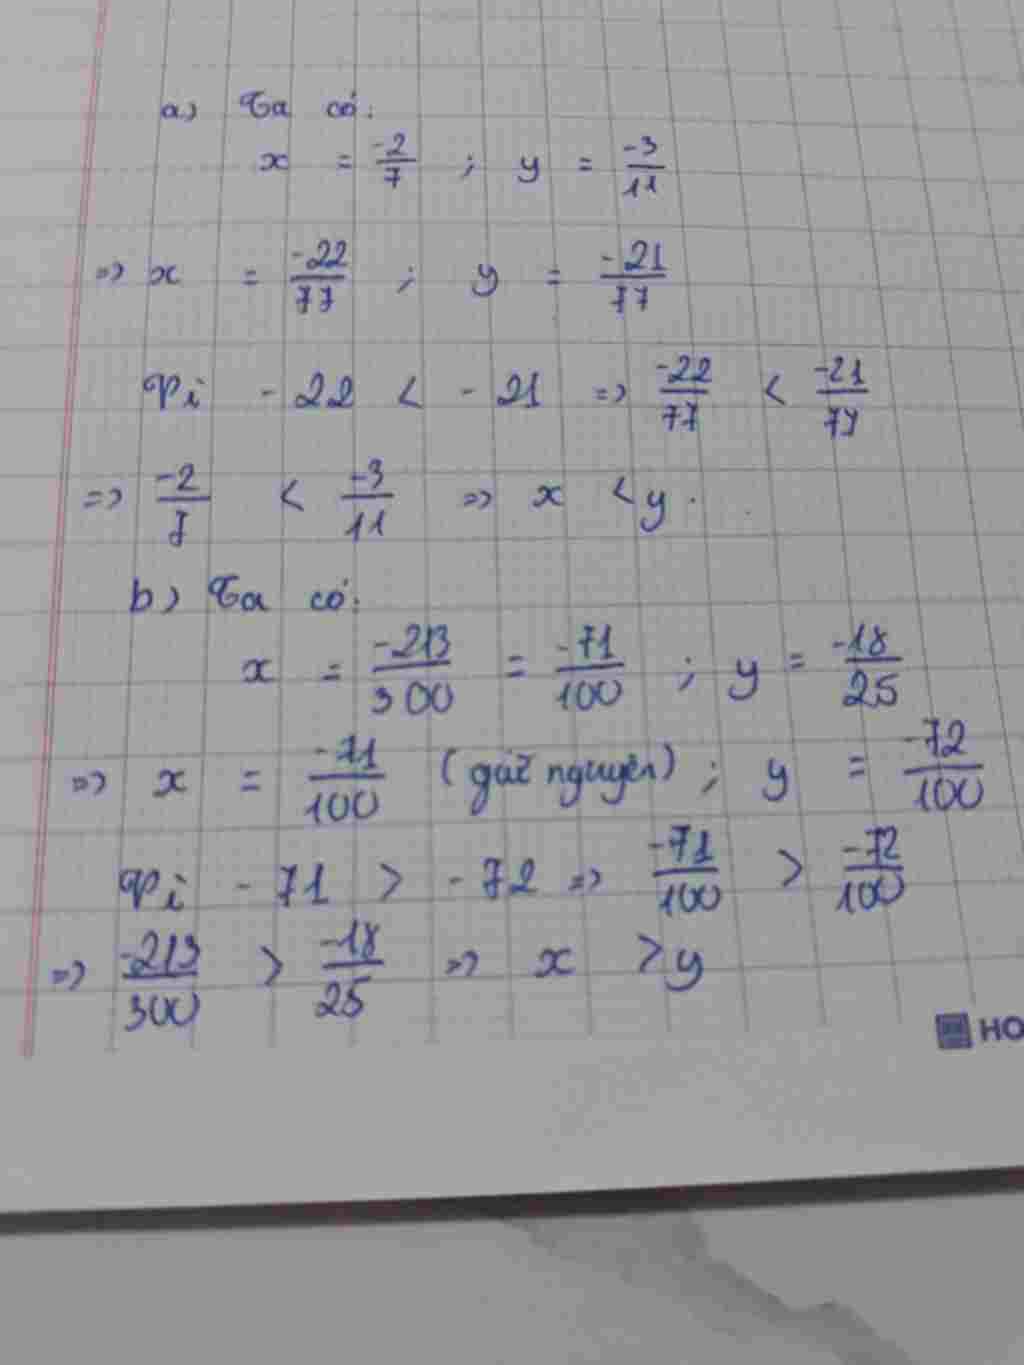 a) Ta có:
x = -2/7 ; y = -3/11
=> x = -22/77 ; y = -21/77
Vì -22 < -21 => -22/77 < -21/77
=> -2/7 < -3/11 => x < y.
b) Ta có:
x = -213/300 = -71/100 ; y = -18/25
=> x = -71/100 (giữ nguyên) ; y = -72/100
Vì -71 > -72 => -71/100 > -72/100
=> -213/300 > -18/25 => x > y
HO